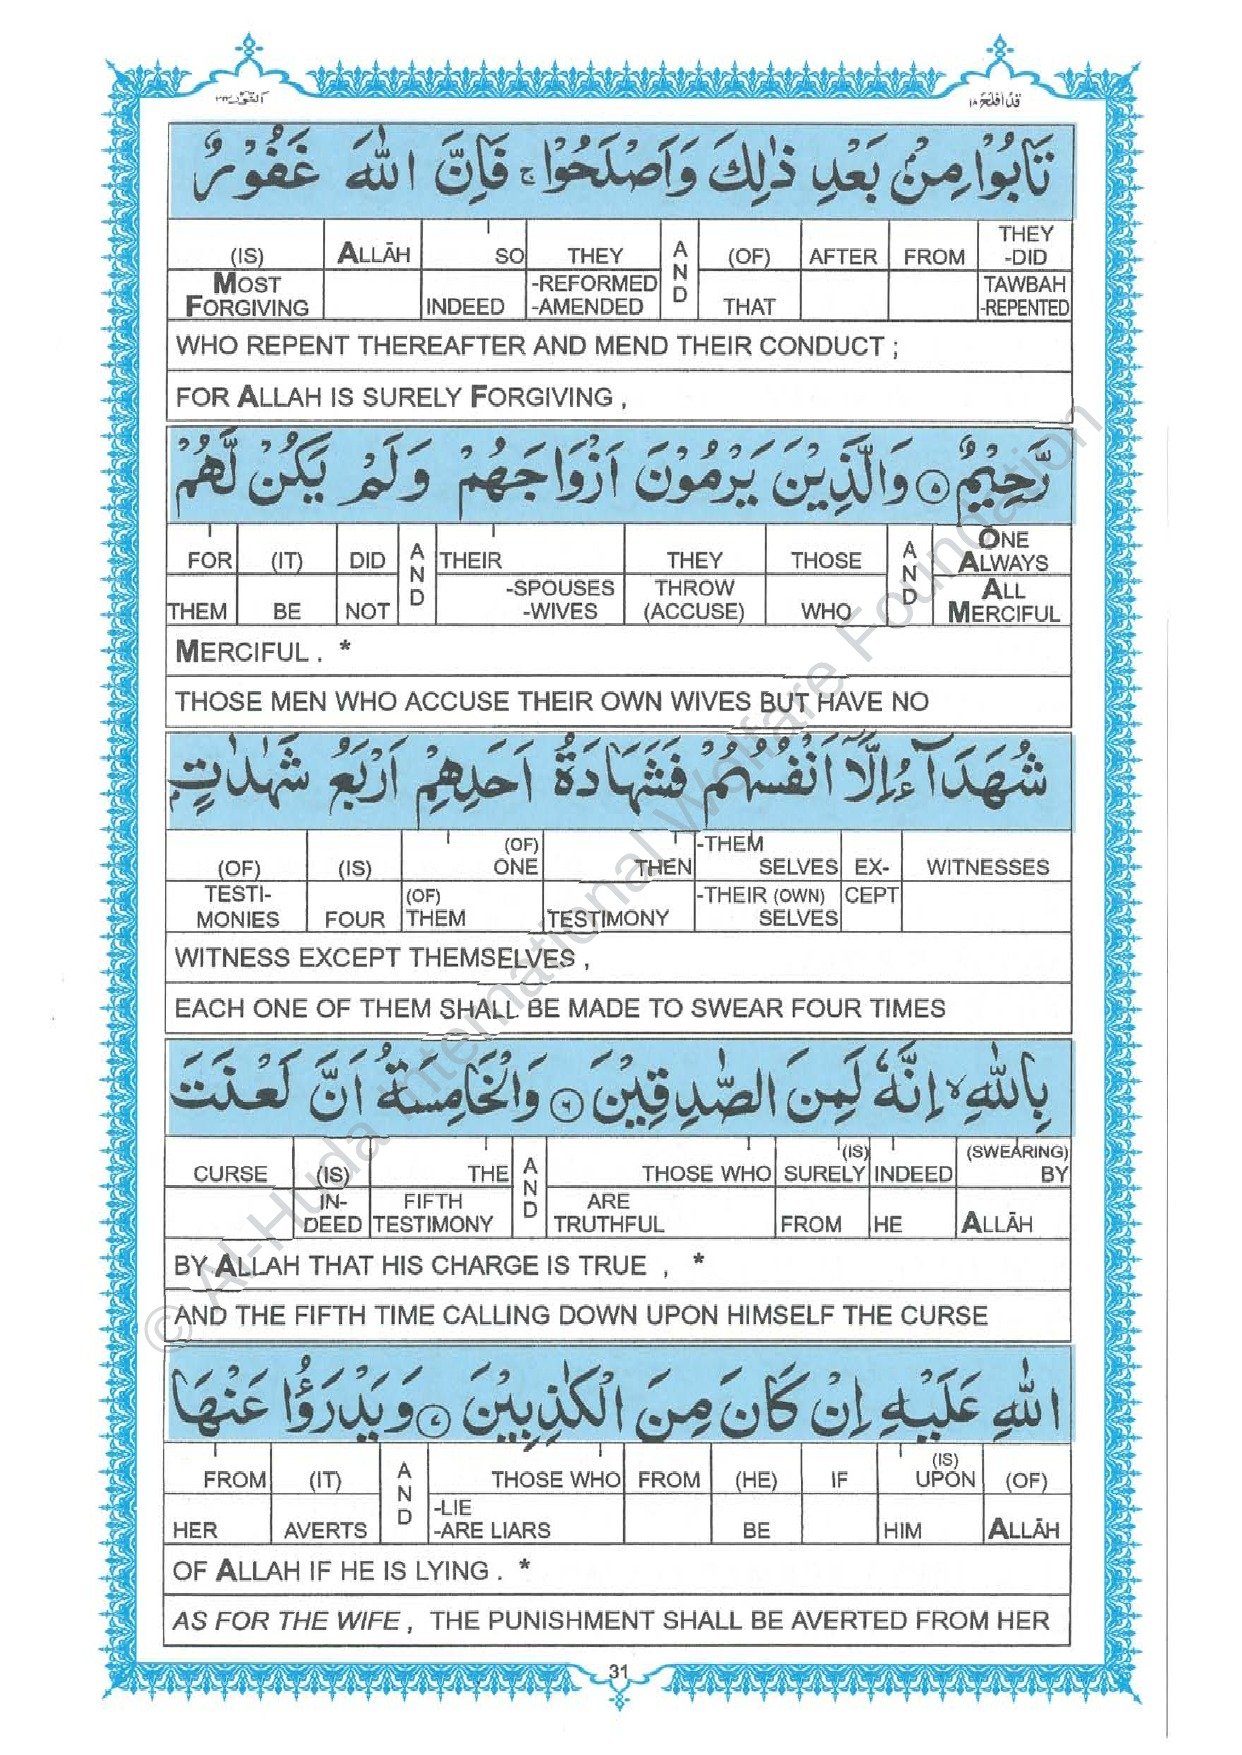 قدافلح ۱۸
النور ۲۴
تَابُوْا مِنْۢ بَعْدِ ذٰلِكَ وَاَصْلَحُوْا ۚ فَاِنَّ اللّٰهَ غَفُوْرٌ
THEY -DID TAWBAH -REPENTED
FROM
AFTER
(OF) THAT
AND
THEY -REFORMED -AMENDED
SO INDEED
ALLĀH
(IS) MOST FORGIVING
WHO REPENT THEREAFTER AND MEND THEIR CONDUCT ;
FOR ALLAH IS SURELY FORGIVING ,
رَّحِيْمٌ ۵ وَالَّذِيْنَ يَرْمُوْنَ اَزْوَاجَهُمْ وَلَمْ يَكُنْ لَّهُمْ
ONE ALWAYS ALL MERCIFUL
AND
THOSE WHO
THEY THROW (ACCUSE)
THEIR -SPOUSES -WIVES
AND
DID NOT
(IT) BE
FOR THEM
MERCIFUL . *
THOSE MEN WHO ACCUSE THEIR OWN WIVES BUT HAVE NO
شُهَدَآءُ اِلَّاۤ اَنْفُسُهُمْ فَشَهَادَةُ اَحَدِهِمْ اَرْبَعُ شَهٰدٰتٍۭ
WITNESSES
EX- CEPT
-THEM SELVES -THEIR (OWN) SELVES
THEN TESTIMONY
(OF) ONE (OF) THEM
(IS) FOUR
(OF) TESTI- MONIES
WITNESS EXCEPT THEMSELVES ,
EACH ONE OF THEM SHALL BE MADE TO SWEAR FOUR TIMES
بِاللّٰهِ ۙ اِنَّهٗ لَمِنَ الصّٰدِقِيْنَ ۶ وَالْخَامِسَةُ اَنَّ لَعْنَتَ
(SWEARING) BY ALLĀH
INDEED HE
(IS) SURELY FROM
THOSE WHO ARE TRUTHFUL
AND
THE FIFTH TESTIMONY
(IS) IN- DEED
CURSE
BY ALLAH THAT HIS CHARGE IS TRUE , *
AND THE FIFTH TIME CALLING DOWN UPON HIMSELF THE CURSE
اللّٰهِ عَلَيْهِ اِنْ كَانَ مِنَ الْكٰذِبِيْنَ ۷ وَيَدْرَؤُا عَنْهَا
(OF) ALLĀH
(IS) UPON HIM
IF
(HE) BE
FROM
THOSE WHO -LIE -ARE LIARS
AND
(IT) AVERTS
FROM HER
OF ALLAH IF HE IS LYING . *
AS FOR THE WIFE , THE PUNISHMENT SHALL BE AVERTED FROM HER
31
© Al-Huda International Welfare Foundation